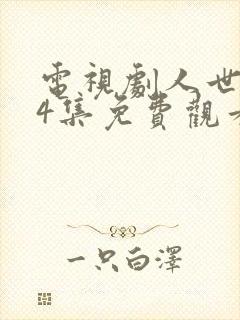 電視劇人世
4集免費觀
一只白澤